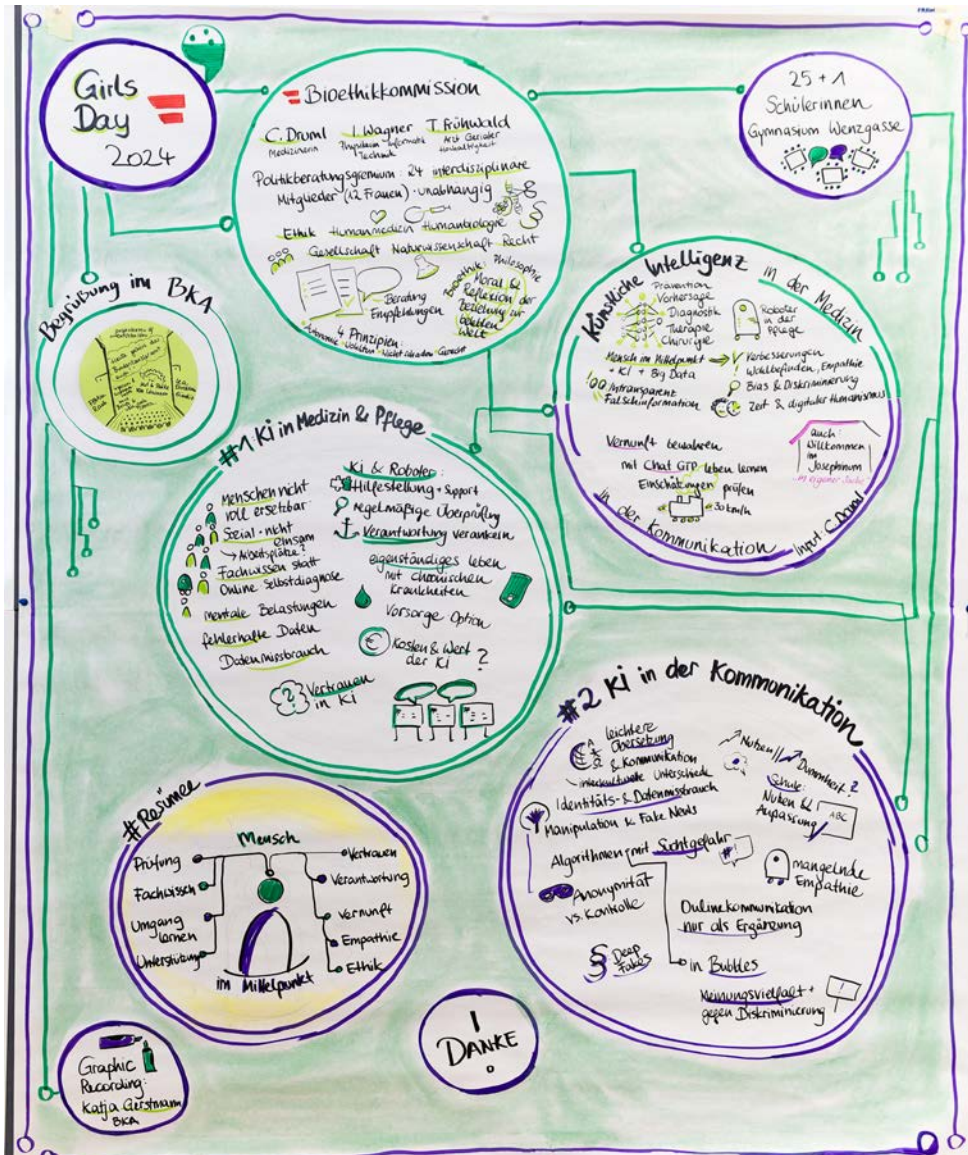 Girls
Day
2024
Bioethikkommission
C. Druml I. Wagner T. Frühwald
Medizinerin Physikerin Informatik Arzt Geriater
Technik
Politikberatungsgremium: 24 interdisziplinäre
Mitglieder (12 Frauen) · unabhängig
Ethik Humanmedizin Humanbiologie
Gesellschaft Naturwissenschaft Recht
Beratung
Empfehlungen
Bioethik: Philosophie
Moral &
Reflexion der
Beziehung zur
belebten
Welt
4 Prinzipien:
Autonomie · Wohltun · Nicht schaden · Gerecht
25 + 1
Schülerinnen
Gymnasium Wenzgasse
Begrüßung im BKA
Künstliche Intelligenz in der Medizin
Prävention
Vorhersage
Diagnostik
Therapie
Chirurgie
Roboter
in der
Pflege
Mensch im Mittelpunkt
+ KI + Big Data
Verbesserungen
Wohlbefinden, Empathie
Intransparenz
Falschinformation
Bias & Diskriminierung
Zeit & digitaler Humanismus
Vernunft bewahren
mit Chat GTP leben lernen
Einschätzungen prüfen
30 km/h
auch:
Willkommen
im
Josephinum
...in eigener Sache
in der Kommunikation
Input C. Druml
#1 Ki in Medizin & Pflege
Menschen nicht
voll ersetzbar
Sozial · nicht
einsam
Arbeitsplätze?
Fachwissen statt
Online Selbstdiagnose
mentale Belastungen
fehlerhafte Daten
Datenmissbrauch
? Vertrauen
in Ki
Ki & Roboter:
Hilfestellung + Support
regelmäßige Überprüfung
Verantwortung verankern
eigenständiges leben
mit chronischen
Krankheiten
Vorsorge Option
€ Kosten & Wert
der Ki ?
#2 Ki in der Kommunikation
leichtere
Übersetzung
& Kommunikation
interkulturelle Unterschiede
Identitäts- & Datenmissbrauch
Manipulation & Fake News
Algorithmen mit Suchtgefahr
#!
Anonymität
vs. Kontrolle
§ Deep
Fakes
Nutzen // Dummheit?
Schule:
Nutzen &
Anpassung
ABC
mangelnde
Empathie
Onlinekommunikation
nur als Ergänzung
in Bubbles
Meinungsvielfalt +
gegen Diskriminierung
#Resümee
Mensch
Prüfung
Fachwissen
Umgang
lernen
Unterstützung
Vertrauen
Verantwortung
Vernunft
Empathie
Ethik
im Mittelpunkt
DANKE
!
Graphic
Recording:
Katja Gerstmann
BKA